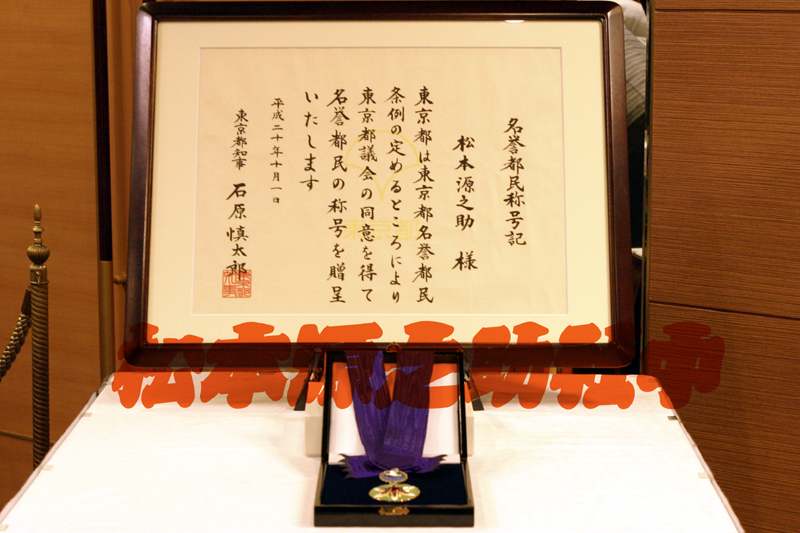 名誉都民称号記
松本源之助 様
東京都は東京都名誉都民
条例の定めるところにより
東京都議会の同意を得て
名誉都民の称号を贈呈
いたします
平成二十年十月一日
東京都知事 石原慎太郎
東京都
松本源之助社中